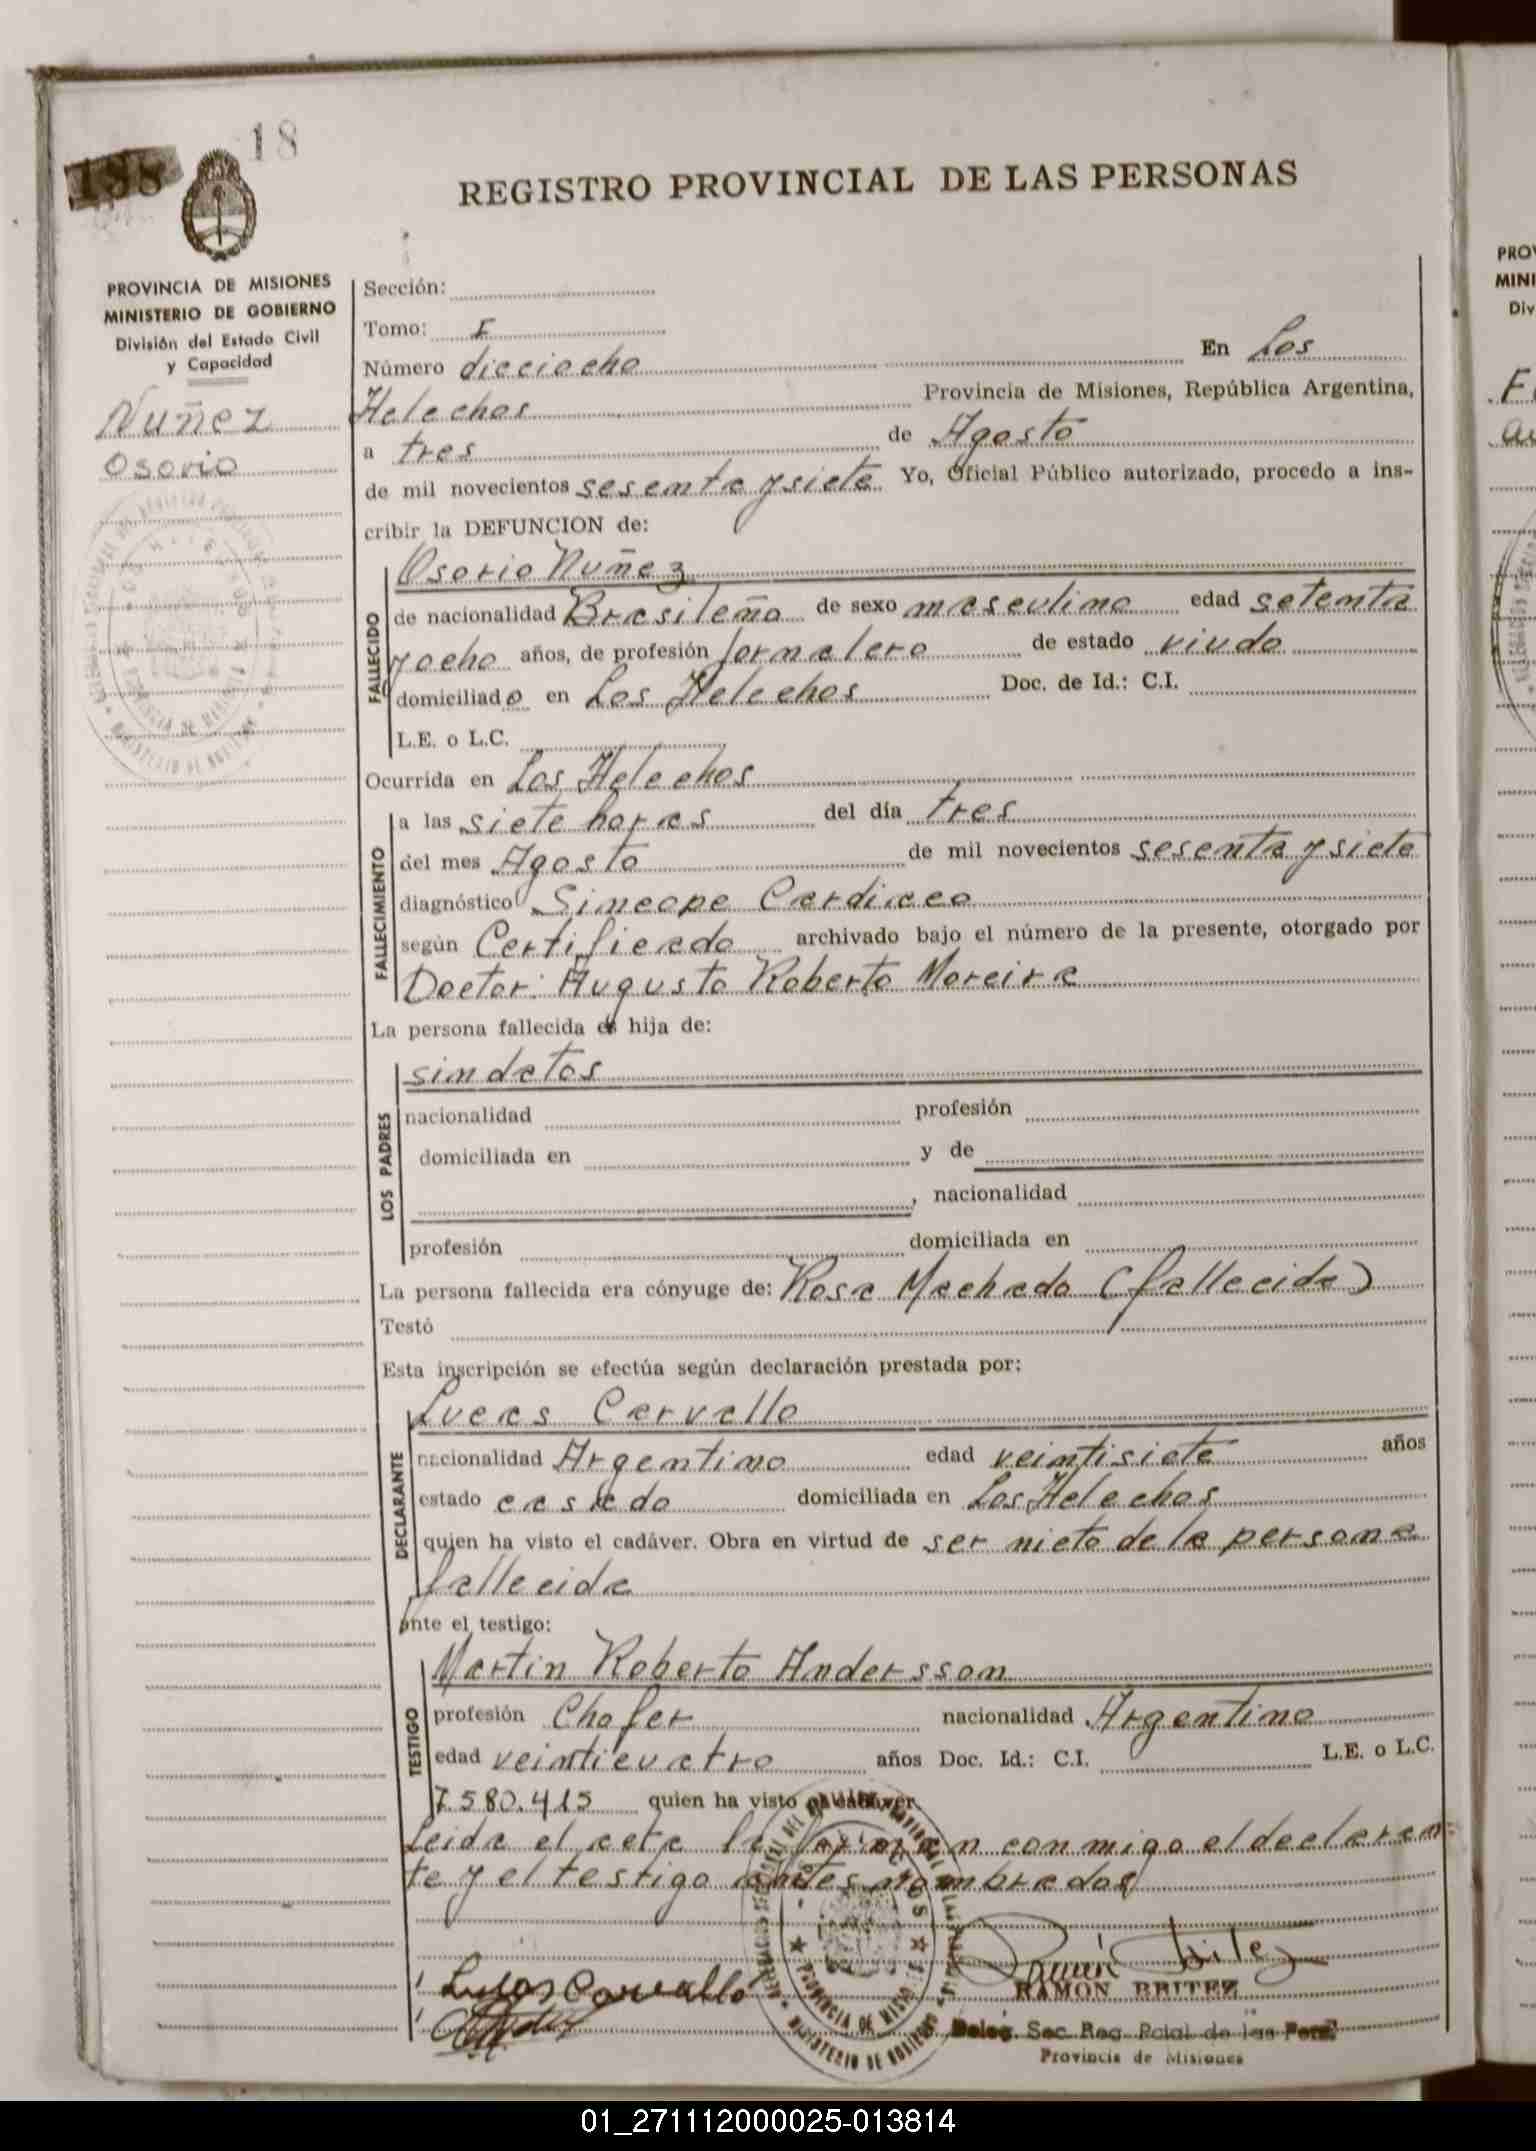 18
188
REGISTRO PROVINCIAL DE LAS PERSONAS
PROVINCIA DE MISIONES
MINISTERIO DE GOBIERNO
División del Estado Civil
y Capacidad
Nuñez
Osorio
Sección:
Tomo: I
Número dieciocho En Los
Helechos Provincia de Misiones, República Argentina,
a tres de Agosto
de mil novecientos sesenta y siete Yo, Oficial Público autorizado, procedo a ins-
cribir la DEFUNCION de:
FALLECIDO
Osorio Nuñez
de nacionalidad Brasileña de sexo masculino edad setenta
y ocho años, de profesión Jornalero de estado viudo
domiciliado en Los Helechos Doc. de Id.: C.I.
L.E. o L.C.
Ocurrida en Los Helechos
FALLECIMIENTO
a las siete horas del día tres
del mes Agosto de mil novecientos sesenta y siete
diagnóstico Sincope Cardiaco
según Certificado archivado bajo el número de la presente, otorgado por
Doctor: Augusto Roberto Moreira
La persona fallecida es hija de:
LOS PADRES
sin datos
nacionalidad profesión
domiciliada en y de
, nacionalidad
profesión domiciliada en
La persona fallecida era cónyuge de: Rosa Machado (fallecida)
Testó
Esta inscripción se efectúa según declaración prestada por:
DECLARANTE
Lucas Carvallo
nacionalidad Argentino edad veintisiete años
estado casado domiciliada en Los Helechos
quien ha visto el cadáver. Obra en virtud de ser nieto de la persona
fallecida
ante el testigo:
TESTIGO
Martin Roberto Andersson
profesión Chofer nacionalidad Argentino
edad veinticuatro años Doc. Id.: C.I. L.E. o L.C.
7.580.415 quien ha visto el cadáver.
Leida el acta la firman conmigo el declaran-
te y el testigo antes nombrados
Lucas Carvallo
RAMON BRITEZ
Deleg. Sec. Reg. Pcial de las Pers.
Provincia de Misiones
PROVINCIA DE MISIONES
MINISTERIO DE GOBIERNO
PROV
MINI
Div
01_271112000025-013814